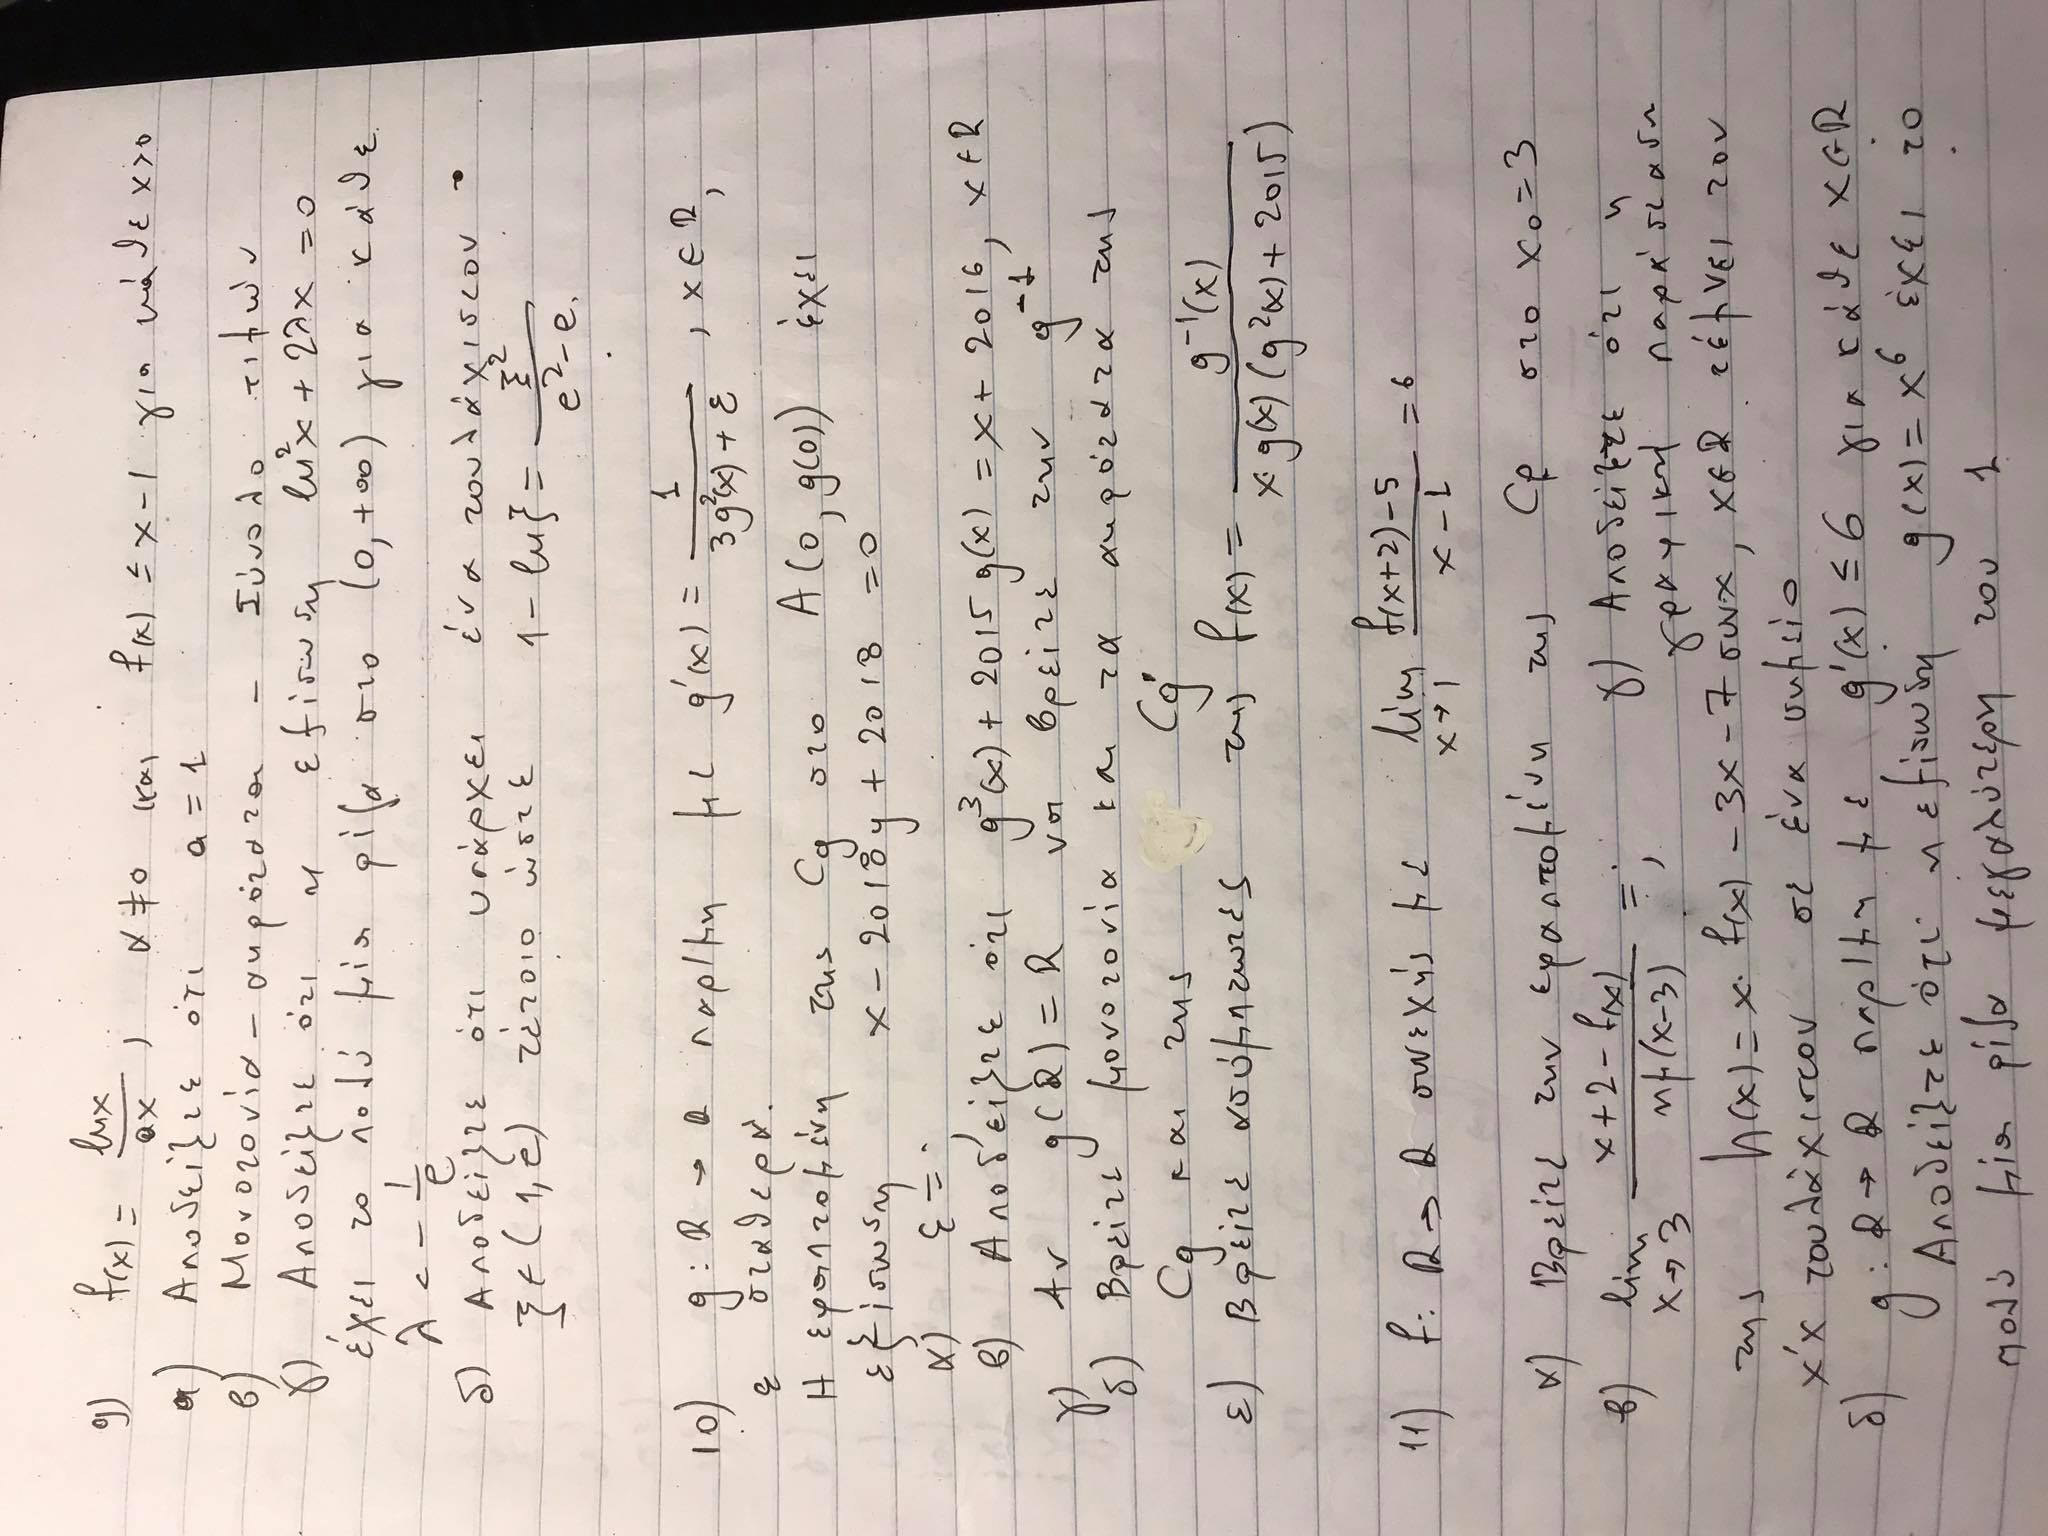 9) f(x) = lnx/αx , α ≠ 0 και f(x) ≤ x-1 για κάθε x>0
α) Αποδείξτε ότι α = 1
β) Μονοτονία - ακρότατα - Σύνολο τιμών
γ) Αποδείξτε ότι η εξίσωση ln²x + 2λx = 0
έχει το πολύ μία ρίζα στο (0,+∞) για κάθε
λ < -1/e
δ) Αποδείξτε ότι υπάρχει ένα τουλάχιστον
ξ ∈ (1,e) τέτοιο ώστε 1 - lnξ = ξ²/(e²-e).
10) g: R → R παρ/μη με g'(x) = 1/(3g²(x)+ε) , x ∈ R,
ε σταθερά.
Η εφαπτομένη της Cg στο A(0, g(0)) έχει
εξίσωση x - 2018y + 2018 = 0
α) ε = ;
β) Αποδείξτε ότι g³(x) + 2015g(x) = x + 2016, x ∈ R
γ) Αν g(R) = R να βρείτε την g⁻¹
δ) Βρείτε μονοτονία και τα ακρότατα της
Cg και της Cg'
ε) Βρείτε ασύμπτωτες της f(x) = g⁻¹(x)/(x·g(x)(g²(x)+2015))
11) f: R → R συνεχής με lim x→1 (f(x+2)-5)/(x-1) = 6
α) Βρείτε την εφαπτομένη της Cf στο x₀=3
β) lim x→3 (x+2-f(x))/ημ(x-3) = ; γ) Αποδείξτε ότι η
γραφική παράσταση
της h(x) = x·f(x) - 3x - 7συνx, x∈R τέμνει τον
x'x τουλάχιστον σε ένα σημείο
δ) g: R → R παρ/μη με g'(x) ≤ 6 για κάθε x∈R
Αποδείξτε ότι η εξίσωση g(x) = x⁶ έχει το
πολύ μία ρίζα μεγαλύτερη του 1